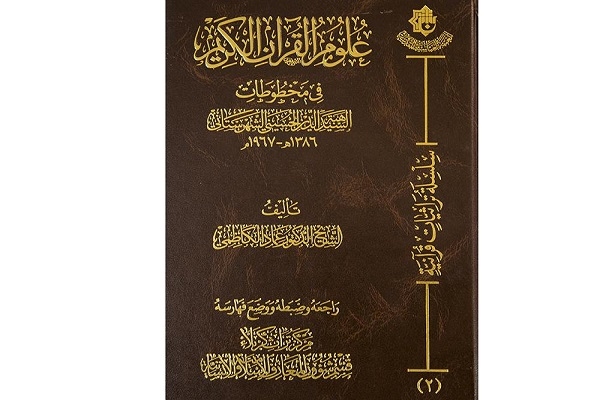 علوم القرآن الكريم
في مخطوطات
السيد هبة الدين الحسيني الشهرستاني
١٣٨٦هـ - ١٩٦٧م
تأليف
الشيخ الدكتور عماد الكاظمي
راجعه وضبطه ووضع فهارسه
مركز تراث كربلاء
قسم شؤون المعارف الإسلامية والإنسانية
سلسلة تراثيات قرآنية
(٢)